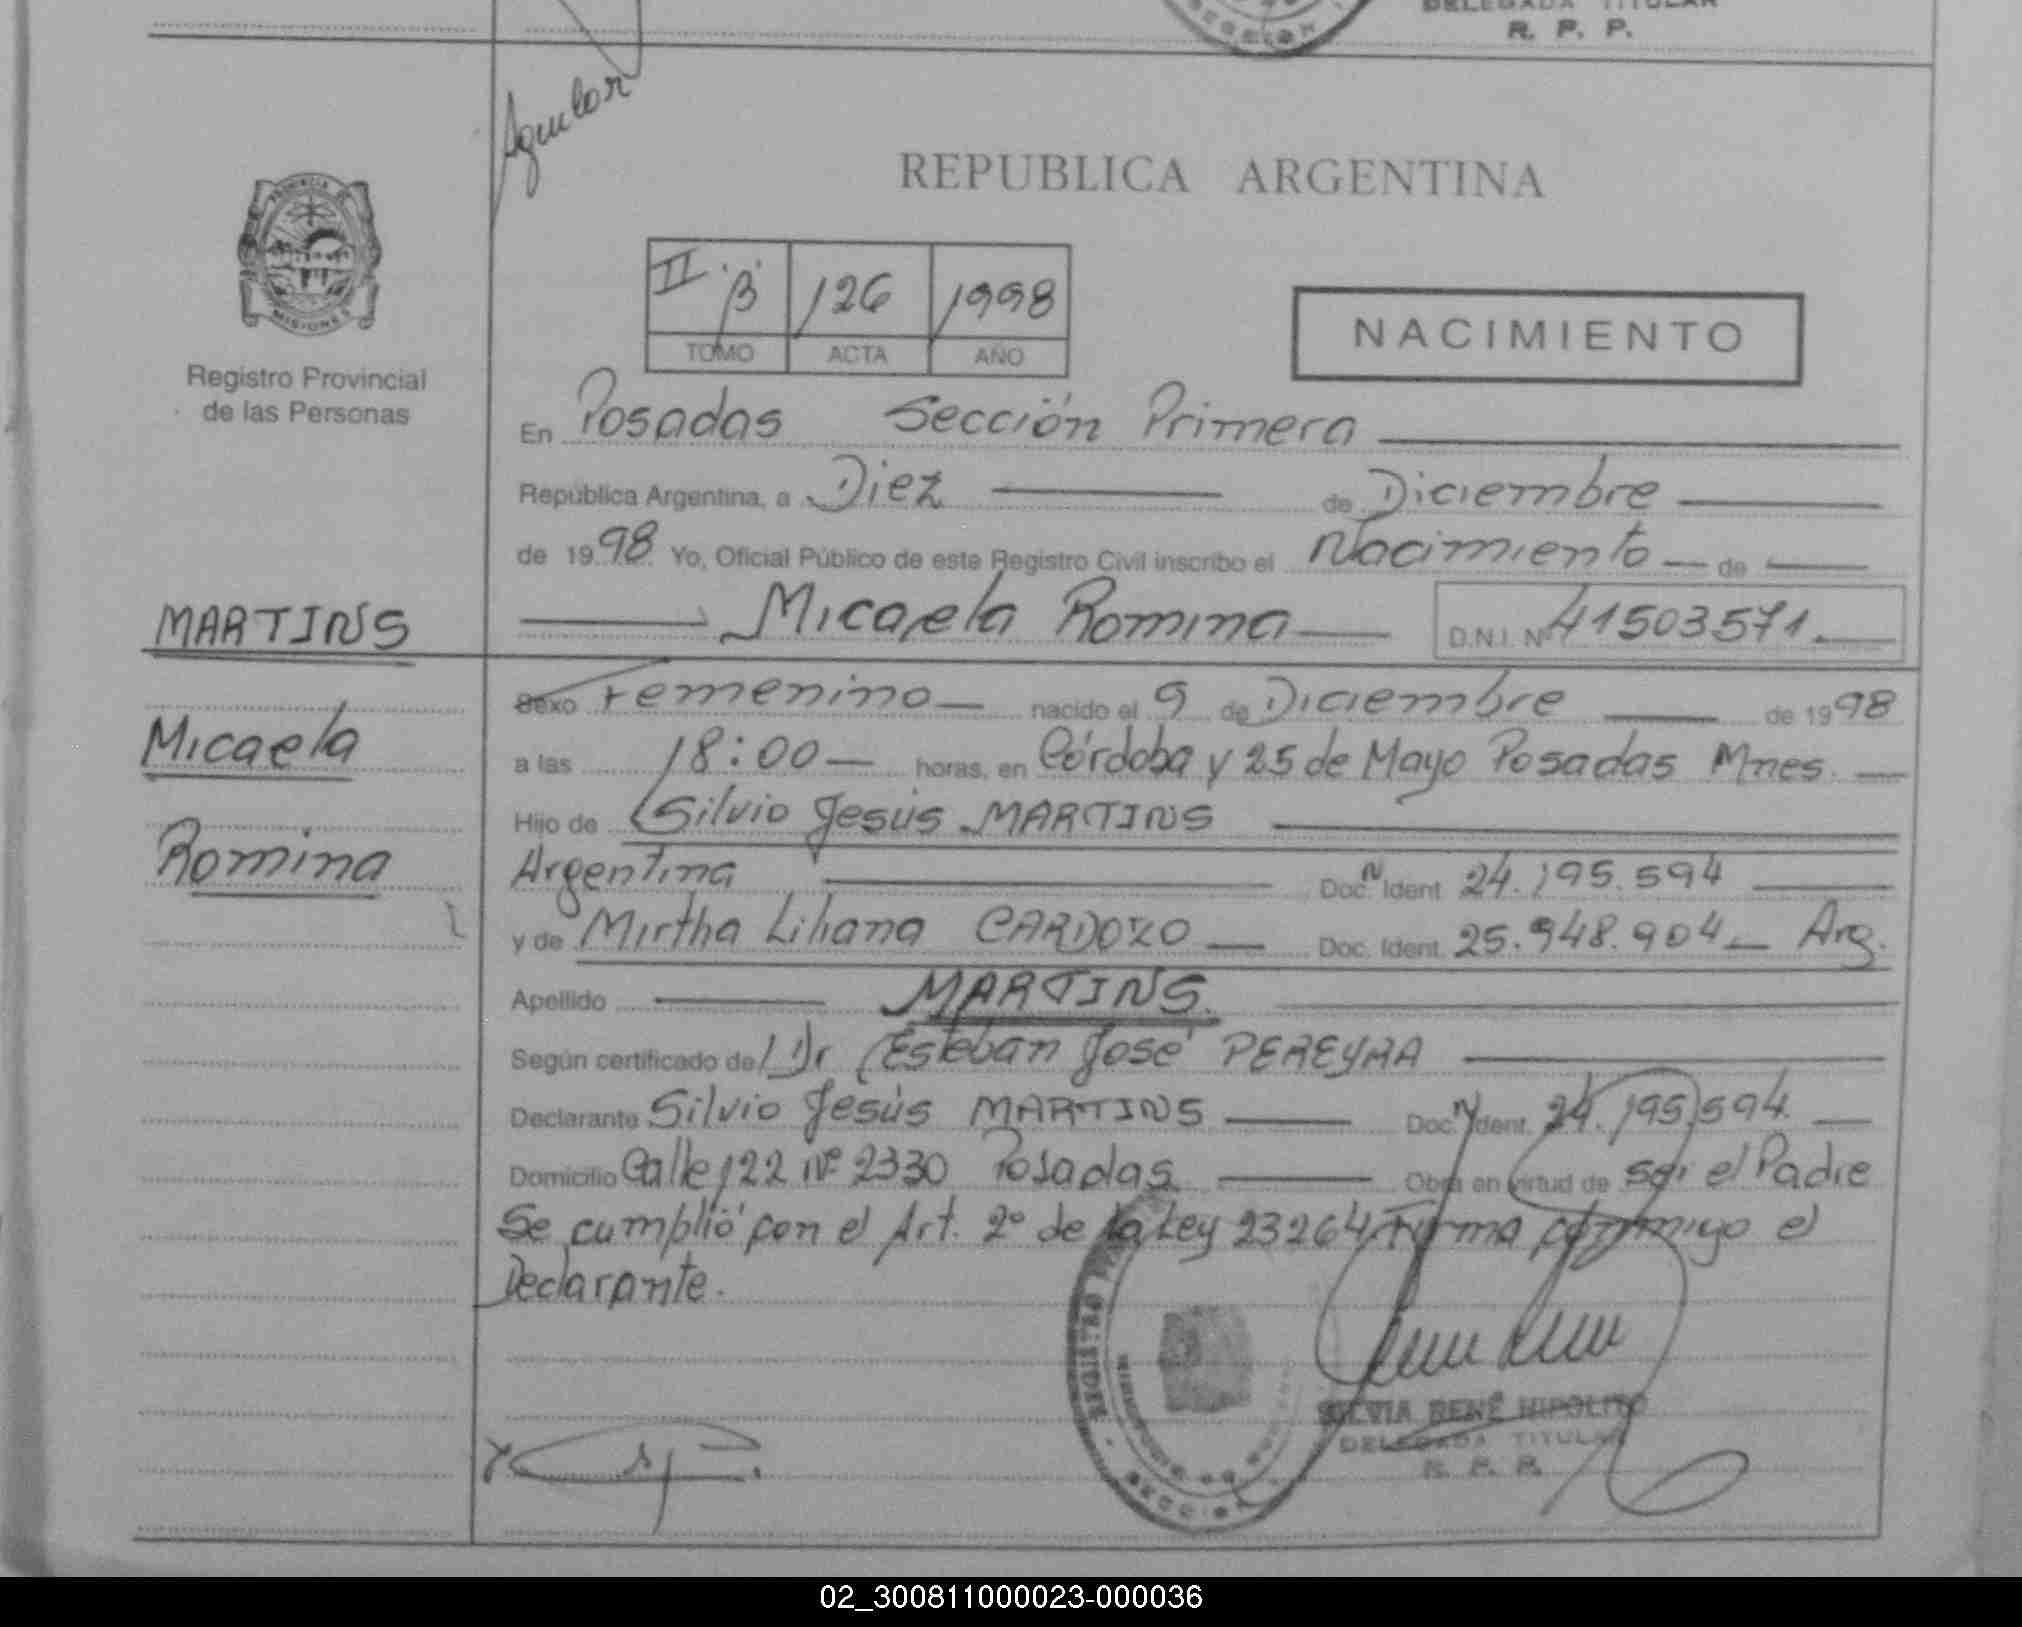 DELEGADA TITULAR
R. P. P.
Aguilar
REPUBLICA ARGENTINA
PROVINCIA DE
MISIONES
Registro Provincial
de las Personas
II "B" 126 1998
TOMO ACTA AÑO
NACIMIENTO
En Posadas Sección Primera
República Argentina, a Diez de Diciembre
de 1998 Yo, Oficial Público de este Registro Civil inscribo el Nacimiento de
Micaela Romina D.N.I. Nº 41503571.
MARTINS
Micaela
Romina
Sexo Femenino nacido el 9 de Diciembre de 1998
a las 18:00 horas, en Córdoba y 25 de Mayo Posadas Mnes.
Hijo de Silvio Jesús MARTINS
Argentina Doc. N Ident. 24.195.594
y de Mirtha Liliana CARDOZO Doc. Ident. 25.948.904 Arg.
Apellido MARTINS.
Según certificado de Dr Esteban José PEREYRA
Declarante Silvio Jesús MARTINS Doc. N Ident. 24.195.594.
Domicilio Calle 122 Nº 2330 Posadas. Obra en virtud de ser el Padre
Se cumplió con el Art. 2º de la Ley 23264 Firma conmigo el
Declarante.
SILVIA RENÉ HIPOLITO
DELEGADA TITULAR
R. P. P.
02_300811000023-000036